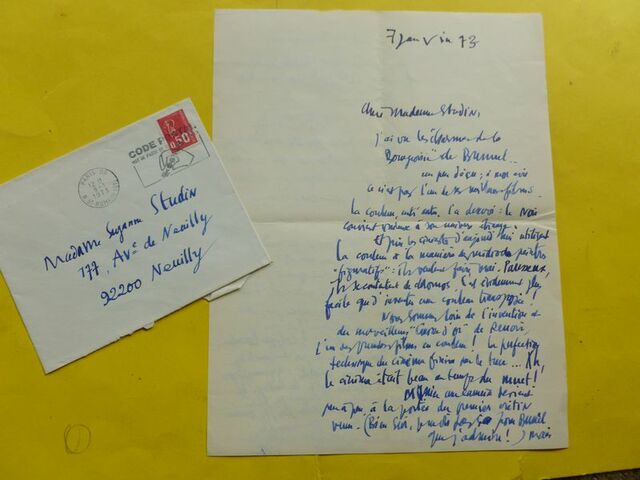 7 Janvier 73
Chère Madame Studin,
J'ai vu le charme de la
Bourgeoisie" de Bunuel...
un peu déçu ; à mon avis
ce n'est pas l'un de ses meilleurs films.
La couleur, : le noir
convient mieux à son univers étrange.
Et puis les d'aujourd'hui utilisent
la couleur à la manière des peintres
figuratifs" : ils veulent faire vrai. Paresseux,
ils se contentent de chromos. Il est évidemment plus
facile que d'inventer une couleur transposée !
Nous sommes loin de l'invention et
du merveilleux "Carrosse d'or" de Renoir,
l'un des premiers films en couleur ! La perfection
technique du cinéma finira par le tuer... Ah,
le cinéma était beau au temps du muet !
une caméra devient
peu à peu à la portée du premier crétin
venu. (Bien sûr, je ne dis pas ça pour Bunuel
que j'admire !) mais
CODE P
0,50
PARIS
1973
Madame Suzanne Studin
177, Ave de Neuilly
92200 Neuilly